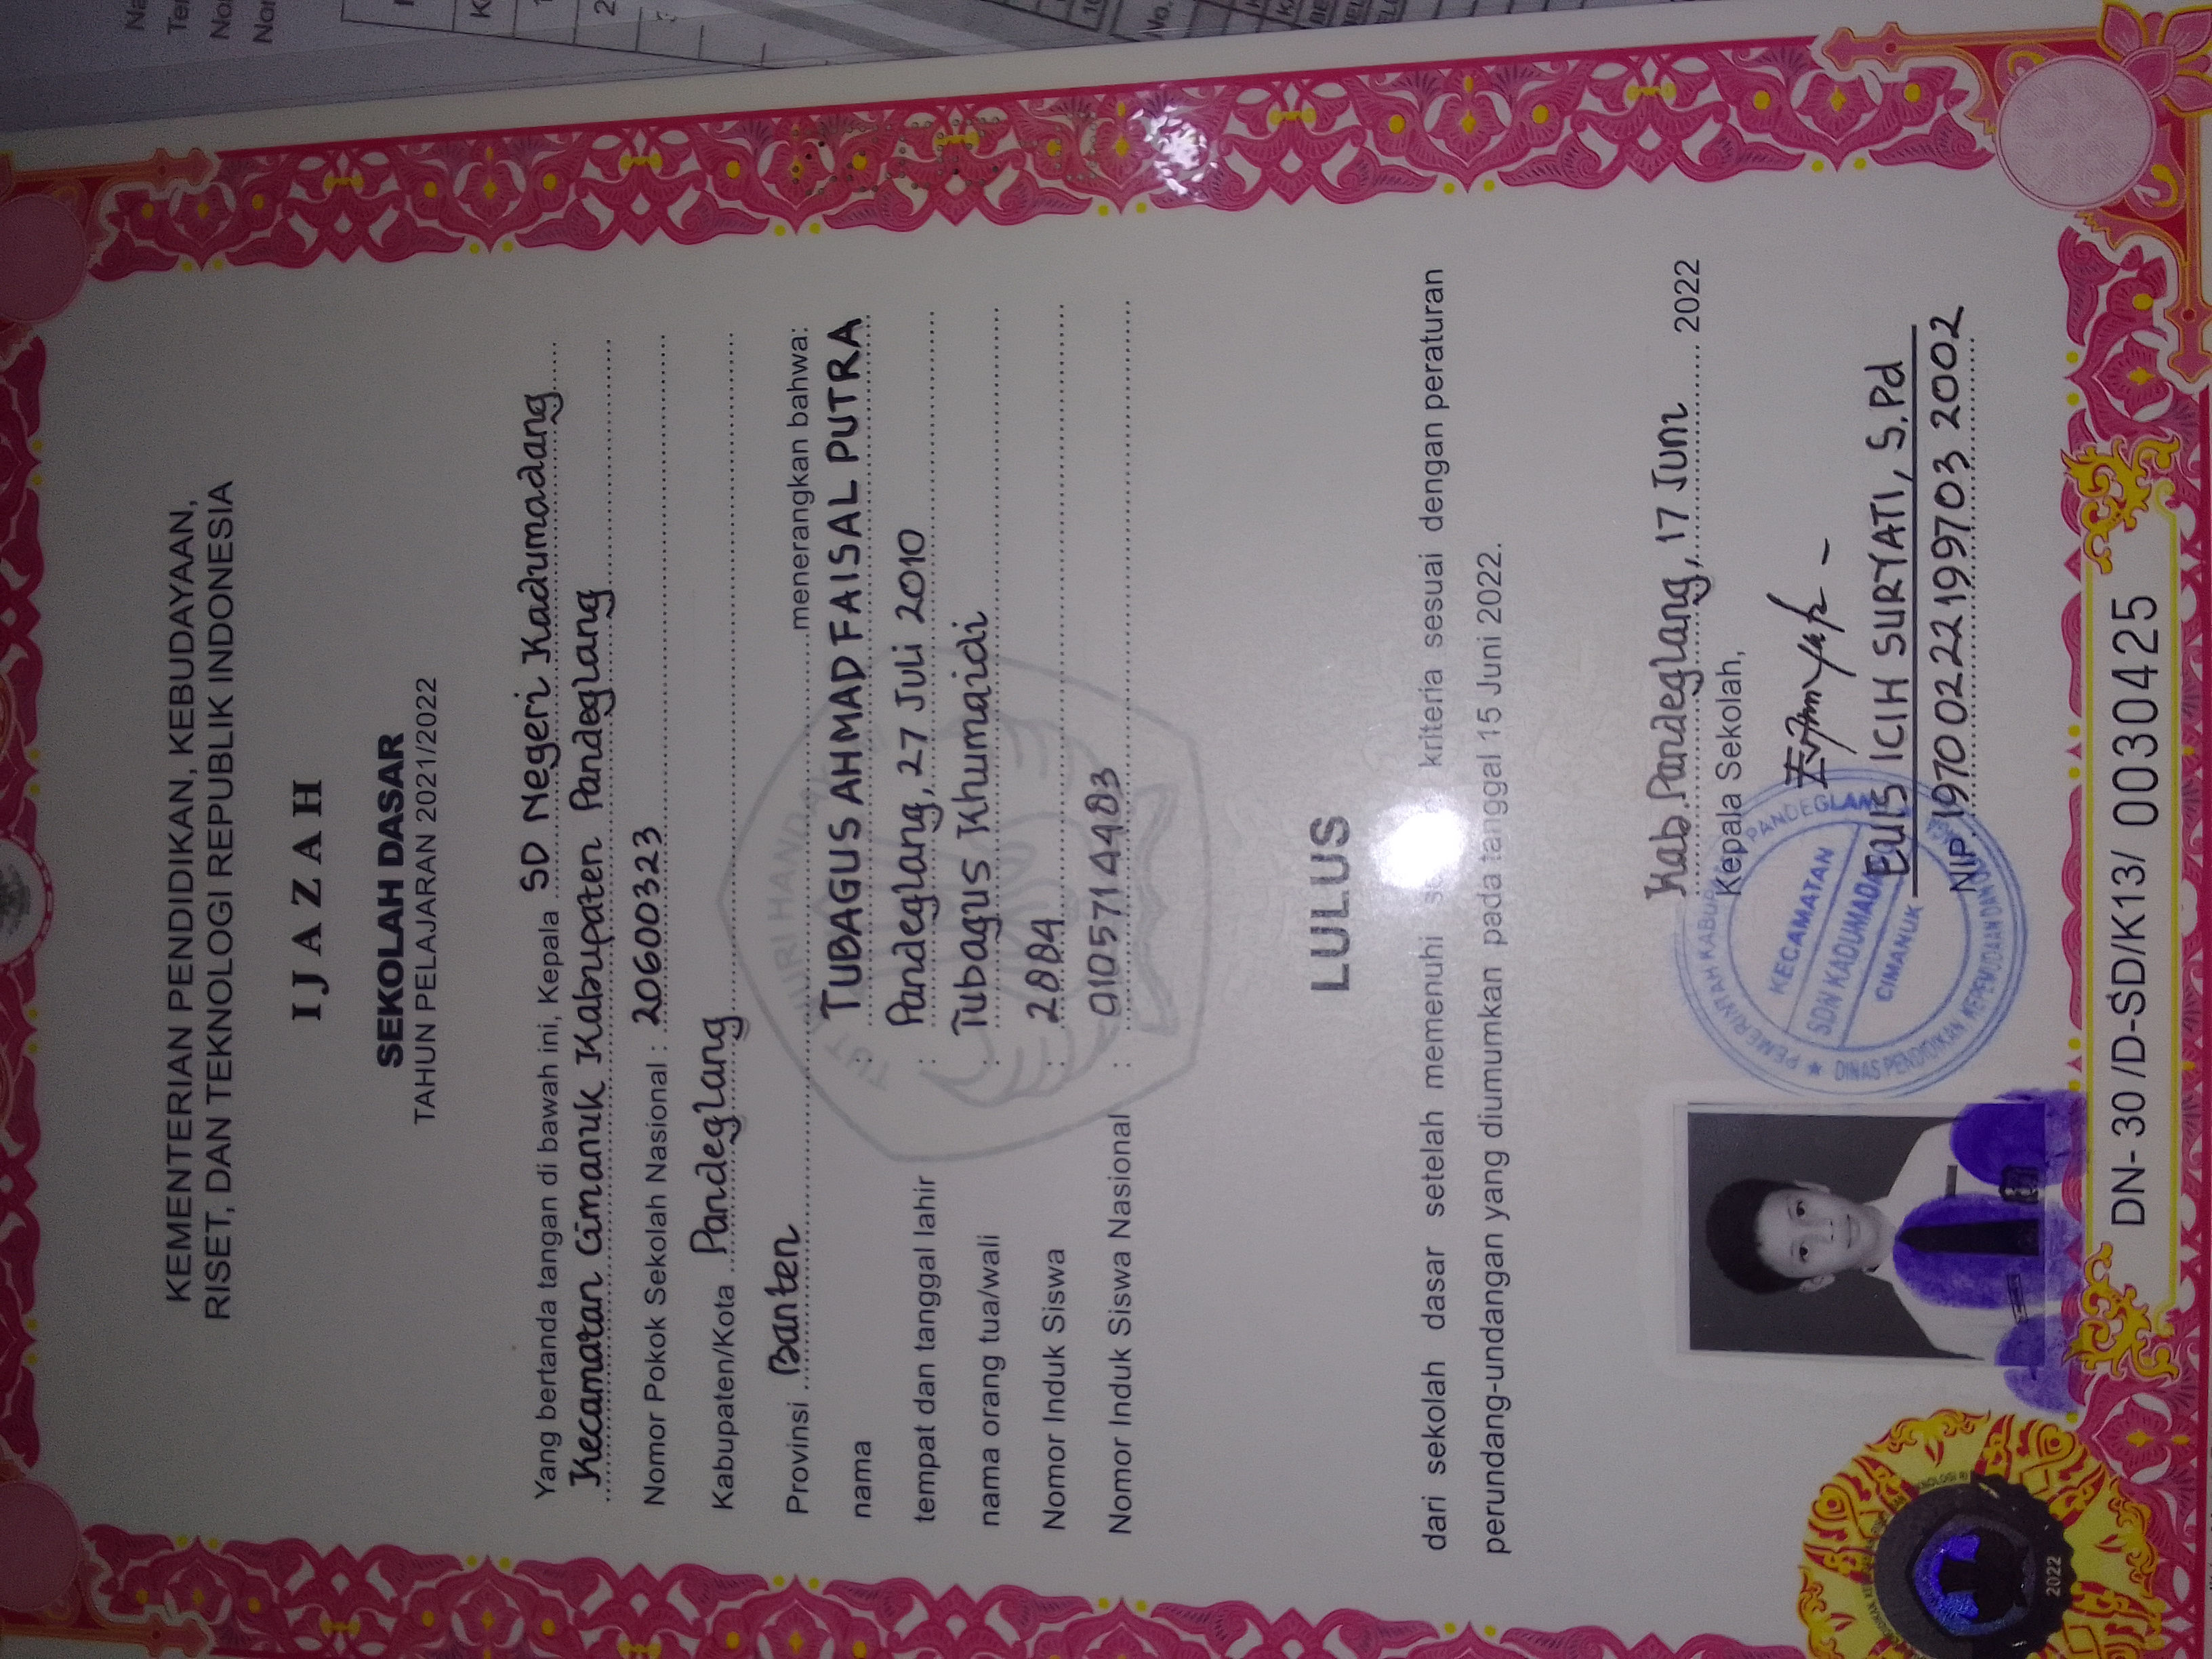 KEMENTERIAN PENDIDIKAN, KEBUDAYAAN,
RISET, DAN TEKNOLOGI REPUBLIK INDONESIA
IJAZAH
SEKOLAH DASAR
TAHUN PELAJARAN 2021/2022
Yang bertanda tangan di bawah ini, Kepala SD Negeri Kadumadang
Kecamatan Cimanuk Kabupaten Pandeglang
Nomor Pokok Sekolah Nasional : 20600323
Kabupaten/Kota Pandeglang
Provinsi Banten menerangkan bahwa:
nama : TUBAGUS AHMAD FAISAL PUTRA
tempat dan tanggal lahir : Pandeglang, 27 Juli 2010
nama orang tua/wali : Tubagus Khumaidi
Nomor Induk Siswa : 2884
Nomor Induk Siswa Nasional : 0105714483
LULUS
dari sekolah dasar setelah memenuhi kriteria sesuai dengan peraturan
perundang-undangan yang diumumkan pada tanggal 15 Juni 2022.
Kab.Pandeglang, 17 Juni 2022
Kepala Sekolah,
PEMERINTAH KABUPATEN PANDEGLANG
KECAMATAN
SDN KADUMADANG
CIMANUK
DINAS PENDIDIKAN KEPEMUDAAN DAN
EUIS ICIH SURYATI, S.Pd
NIP. 197002221997032002
DN-30/D-SD/K13/0030425
2022